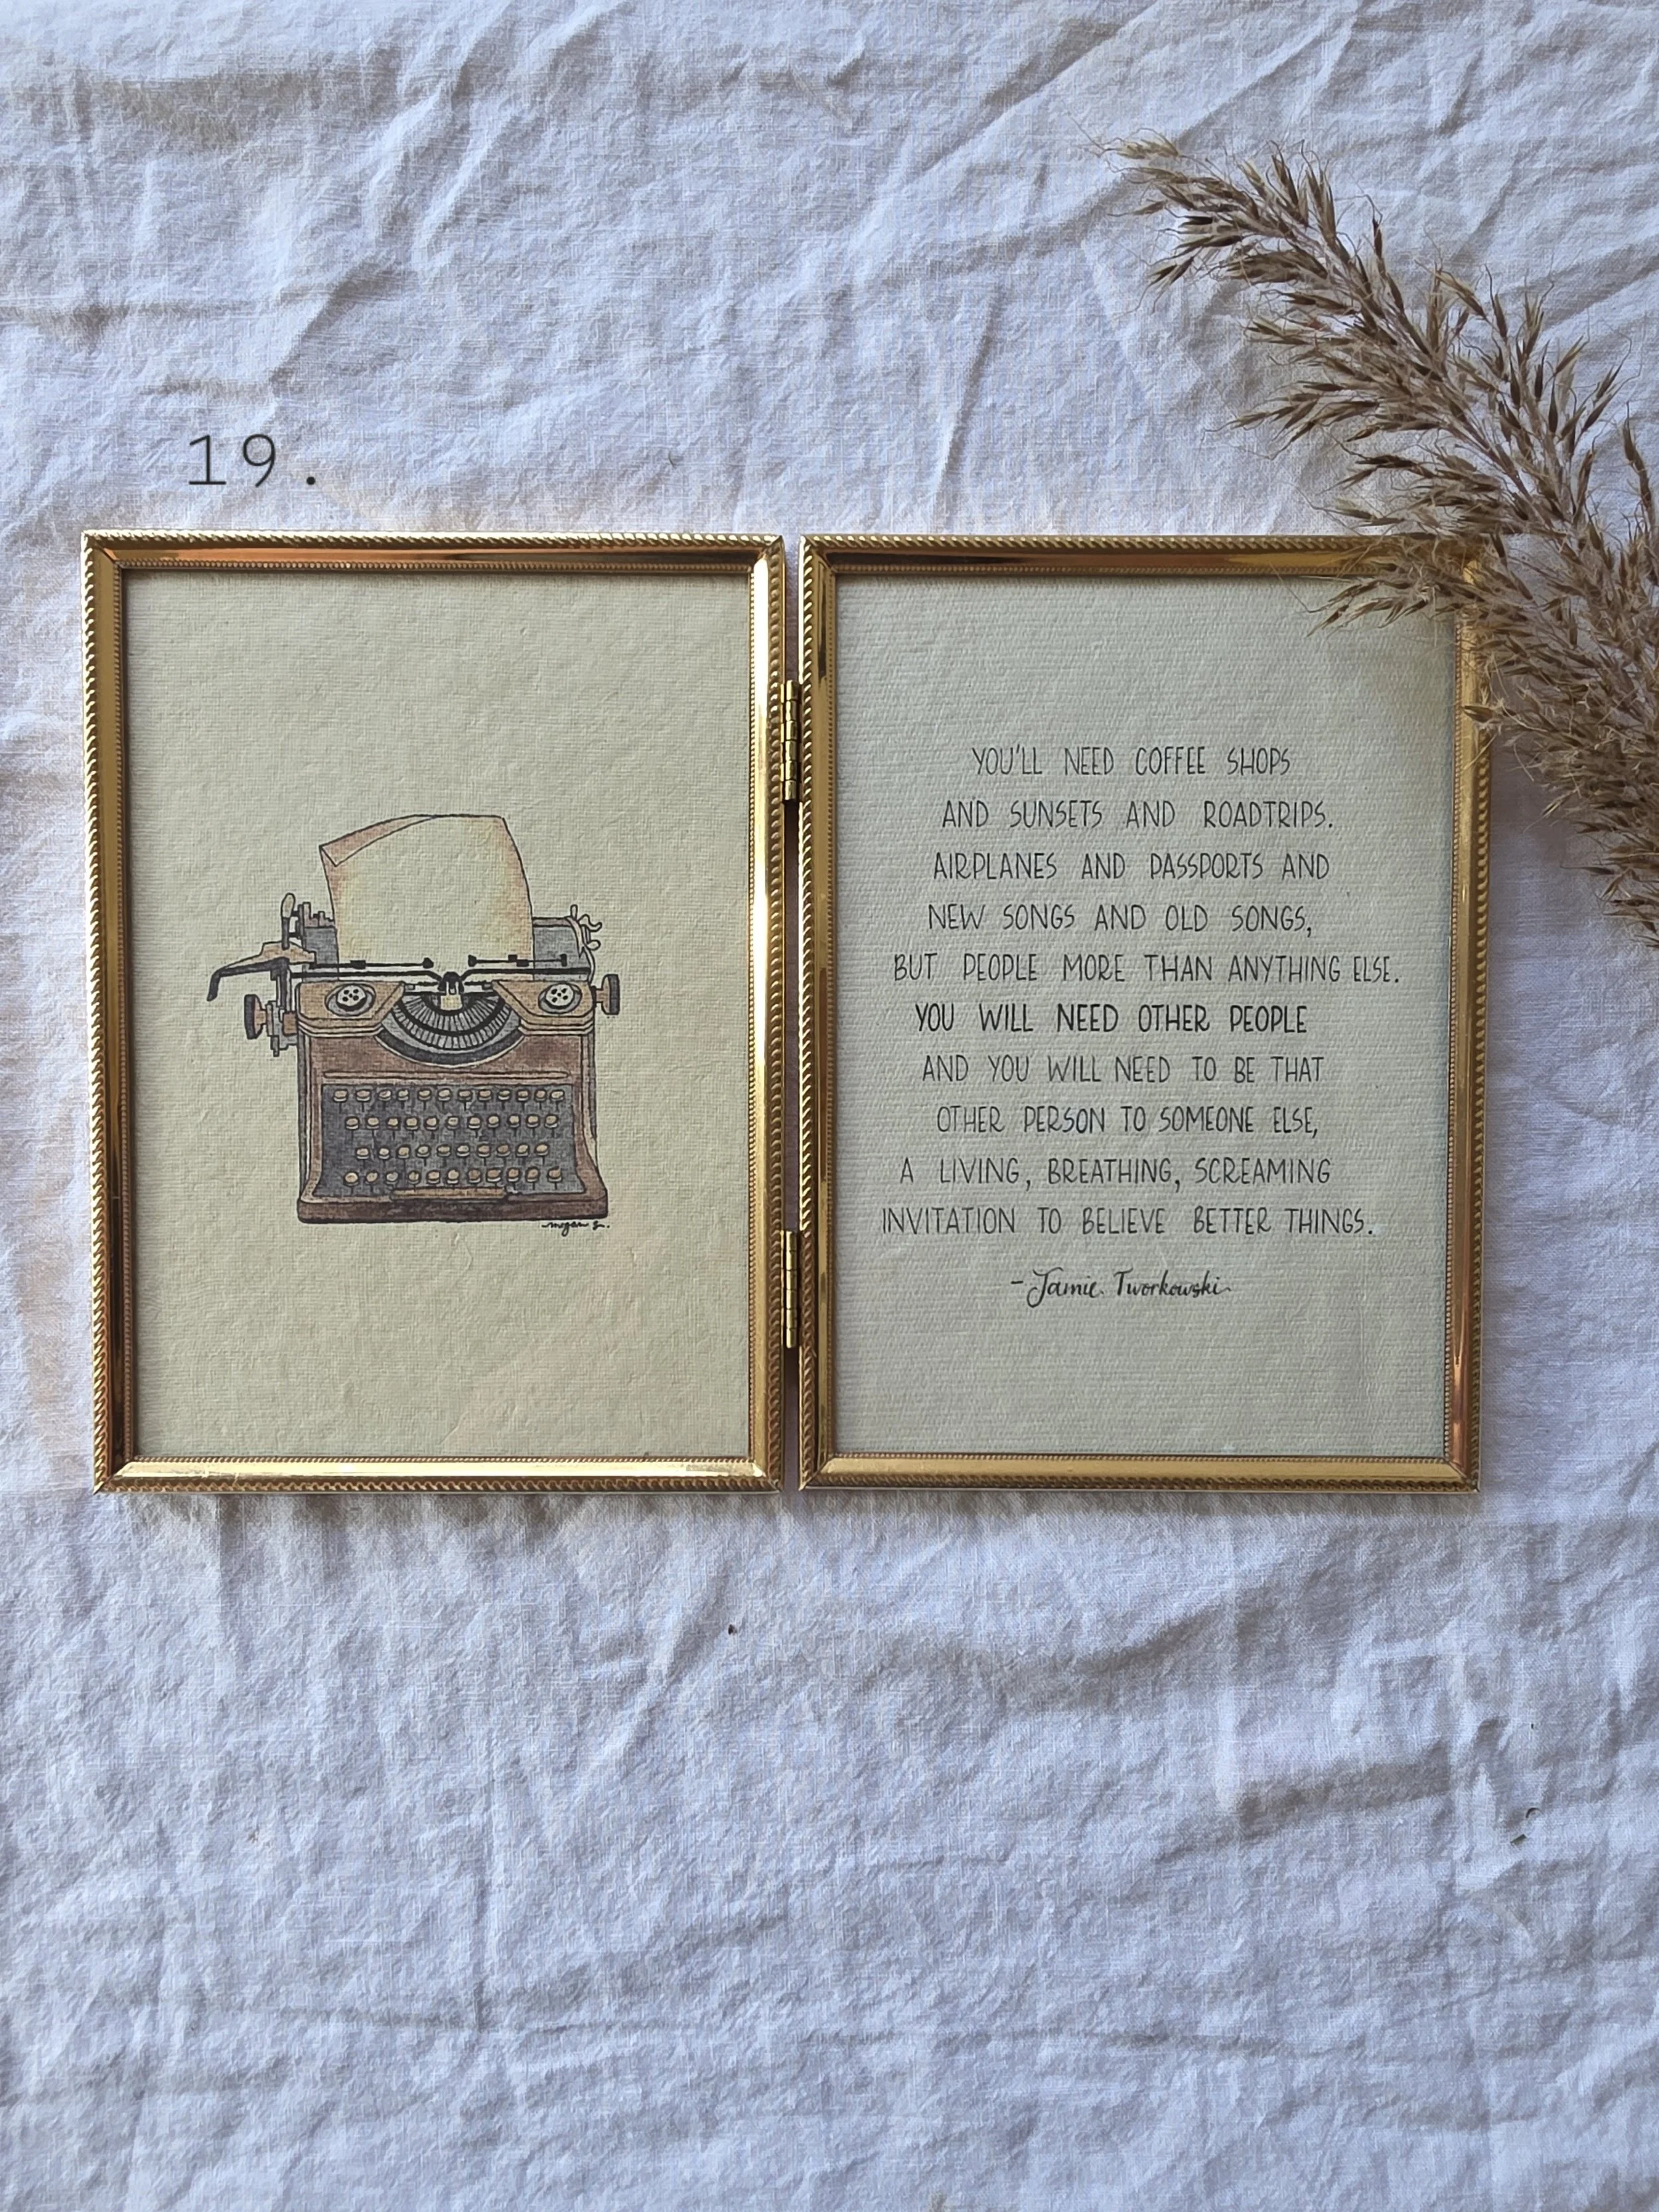 19.
YOU'LL NEED COFFEE SHOPS
AND SUNSETS AND ROADTRIPS.
AIRPLANES AND PASSPORTS AND
NEW SONGS AND OLD SONGS,
BUT PEOPLE MORE THAN ANYTHING ELSE.
YOU WILL NEED OTHER PEOPLE
AND YOU WILL NEED TO BE THAT
OTHER PERSON TO SOMEONE ELSE,
A LIVING, BREATHING, SCREAMING
INVITATION TO BELIEVE BETTER THINGS.
- Jamie Tworkowski